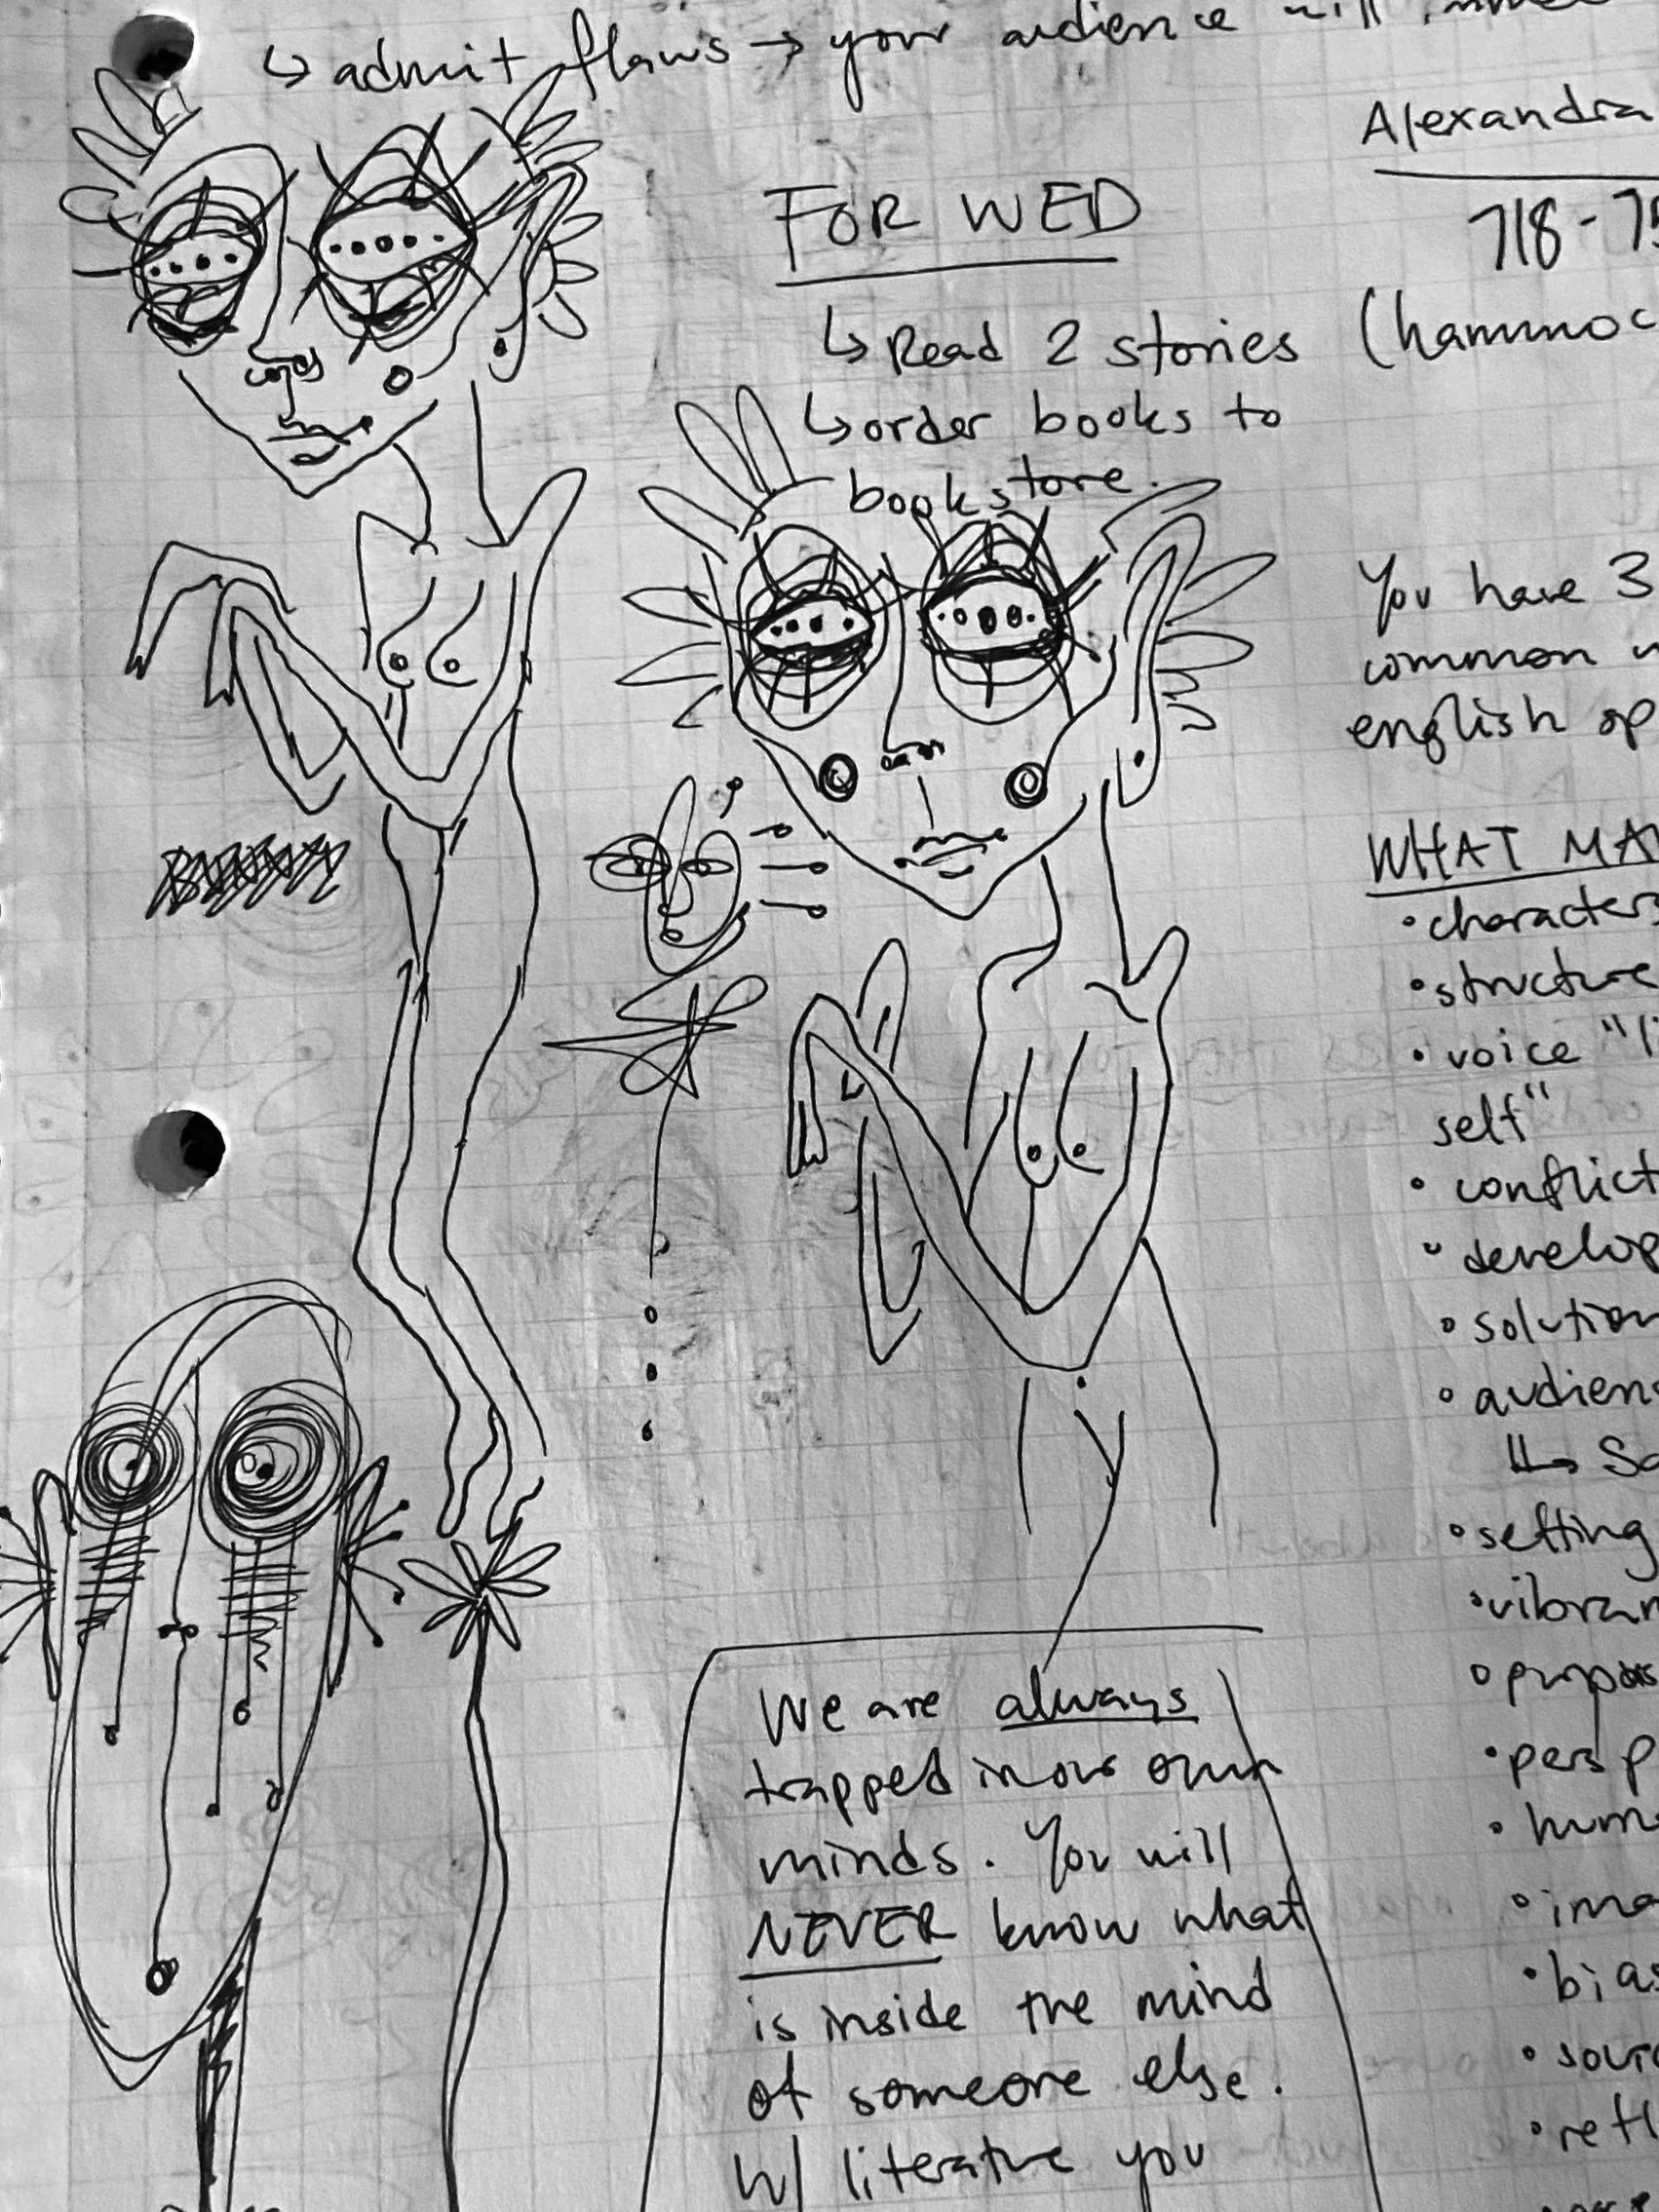 ↳ admit flaws → your audience will
Alexandra
718-75
FOR WED
↳ Read 2 stories
(hammoc
↳ order books to
bookstore.
You have 3
common
english op
WHAT MA
• characters
• structure
• voice "li
self"
• conflict
• develop
• solution
• audien
↳ So
• setting
• vibran
• purpos
• persp
• hum
• ima
• bias
• sour
• refl
We are always
trapped in our own
minds. You will
NEVER know what
is inside the mind
of someone else.
w/ literature you